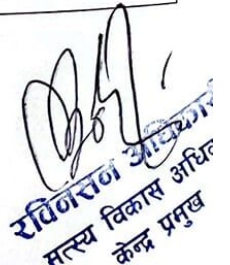 रविनसन अधिकारी
मत्स्य विकास अधि
केन्द्र प्रमुख